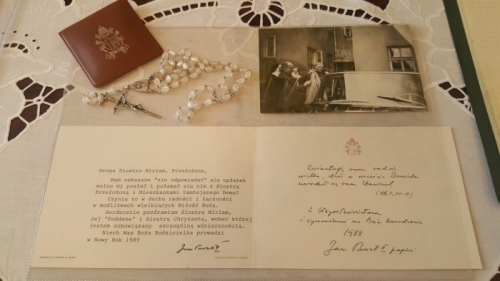 Droga Siostro Miriam, Przełożona,
Mam nakazane "nie odpowiadać" ale opłatek
wolno mi posłać i połamać się nim z Siostrą
Przełożoną i Mieszkankami tamtejszego Domu!
Czynię to w duchu radości i łączności
w modlitwach wielbiących Miłość Bożą.
Serdecznie pozdrawiam Siostrę Miriam,
Jej "Poddane" i Siostrę Chryzantę, wobec której
jestem zobowiązany szczególną wdzięcznością.
Niech Was Boża Rodzicielka prowadzi
w Nowy Rok 1989
Zwiastuję wam radość
wielką: dziś w mieście Dawida
narodził się wam Zbawiciel
(Łk 2, 10-11)
Z błogosławieństwem
Boże Narodzenie
1988
Jan Paweł II, papież